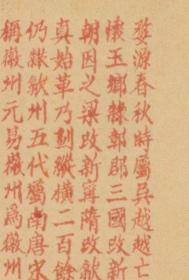 婺源春秋時屬吳越越亡
懷玉鄉隸鄣郡三國改新
朝因之梁改新寧隋改歙
真始革乃割縱橫二百餘
仍隸歙州五代屬南唐宋
稱徽州元易徽州爲徽州